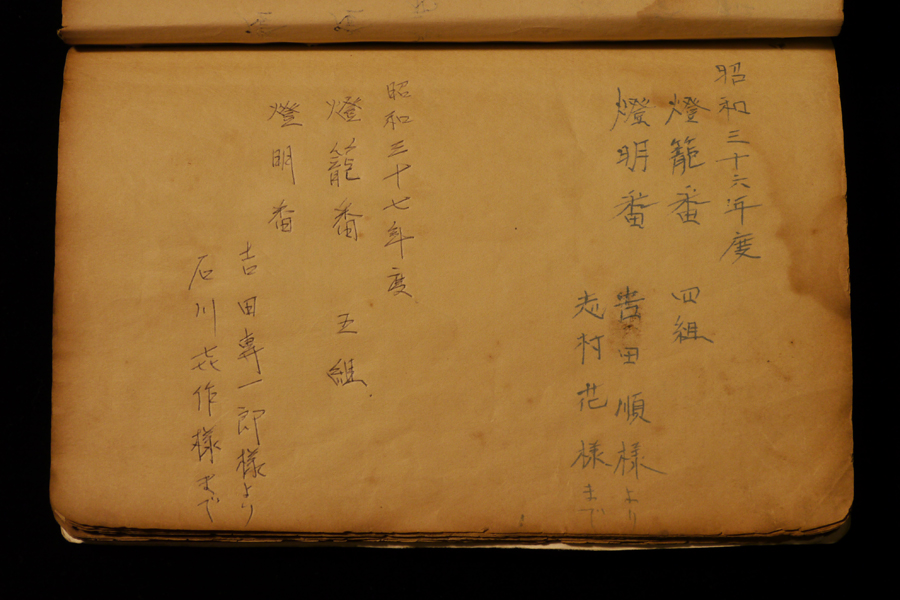 昭和三十六年度
燈籠番 四組
燈明番 吉田順様より
志村花様まで
昭和三十七年度
燈籠番 五組
燈明番
吉田専一郎様より
石川㐂作様まで